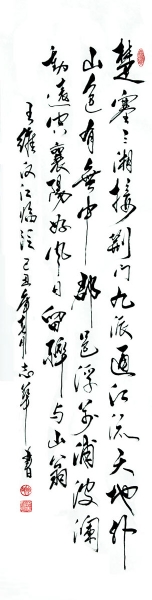 楚塞三湘接荆门九派通江流天地外
山色有無中郡邑浮前浦波瀾
動遠空襄陽好风日留醉与山翁
王維汉江临泛己丑年月志华書